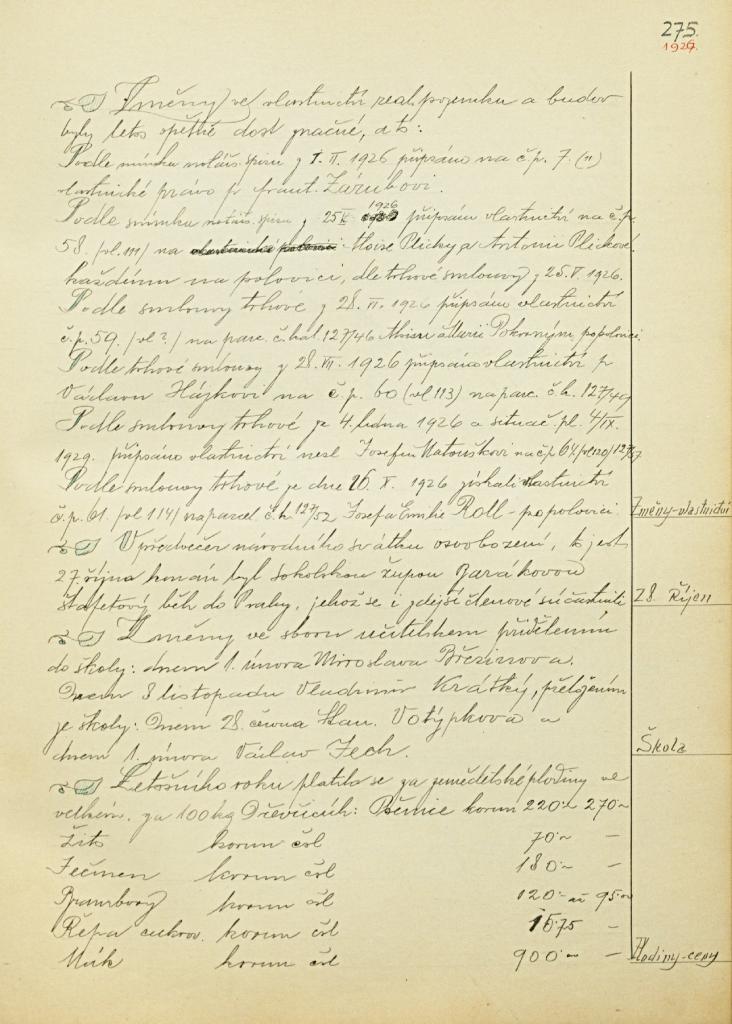 275.
1926.
Změny ve vlastnictví real. pozemku a budov
byly letos opětně dost značné, a to:
Podle snímku notářs. spisu z 1. II. 1926 připsáno na č.p. 7. (11)
vlastnické právo p. Frant. Zárubovi.
Podle snímku notářs. spisu z 25 1926 připsáno vlastnictví na č.p.
58. (vl. 111) na Aloise Plicky a Antonii Plickové
každému na polovici, dle trhové smlouvy z 25. V. 1926.
Podle smlouvy trhové z 28. VI. 1926 připsáno vlastnictví
č.p. 59. (vl ?.) na parc. č. kat. 127/46 Aloisu a Marii Pokorným po polovici.
Podle trhové smlouvy z 28. VII. 1926 připsáno vlastnictví p.
Václavu Hájkovi na č.p. 60 (vl 113) na parc. č. k. 127/49
Podle smlouvy trhové ze 4. ledna 1926 a situač. pl. 4/IX.
1929. připsáno vlastnictví nesl Josefu Matouškovi na čp 64 (vl 120) 127/57
Podle smlouvy trhové ze dne 26. X. 1926 získali vlastnictví
č.p. 61. (vl 114) na parcel č. k. 127/52 Josef a Emilie Roll - po polovici.
Změny-vlastnictví
V předvečer národního svátku osvobození, to jest
27. října konán byl sokolskou župou Barákovou
štafetový běh do Prahy, jehož se i zdejší členové súčastnili
28. Říjen
Změny ve sboru učitelském přidělením
do školy: dnem 1. února Miroslava Březinova.
Dnem 8 listopadu Vladimír Krátký, přeložením
ze školy: Dnem 28. června Stan. Votýpková a
dnem 1. února Václav Zech.
Škola
Letošního roku platilo se za zemědělské plodiny ve
velkém. za 100 kg Pšenice korun 220·- 270·-
Žito korun čsl 70·- -
Ječmen korun čsl 180·- -
Brambory korun čsl 120·- až 95·-
Řepa cukrov. korun čsl 15·75 -
Mák korun čsl 900·- -
Plodiny-ceny